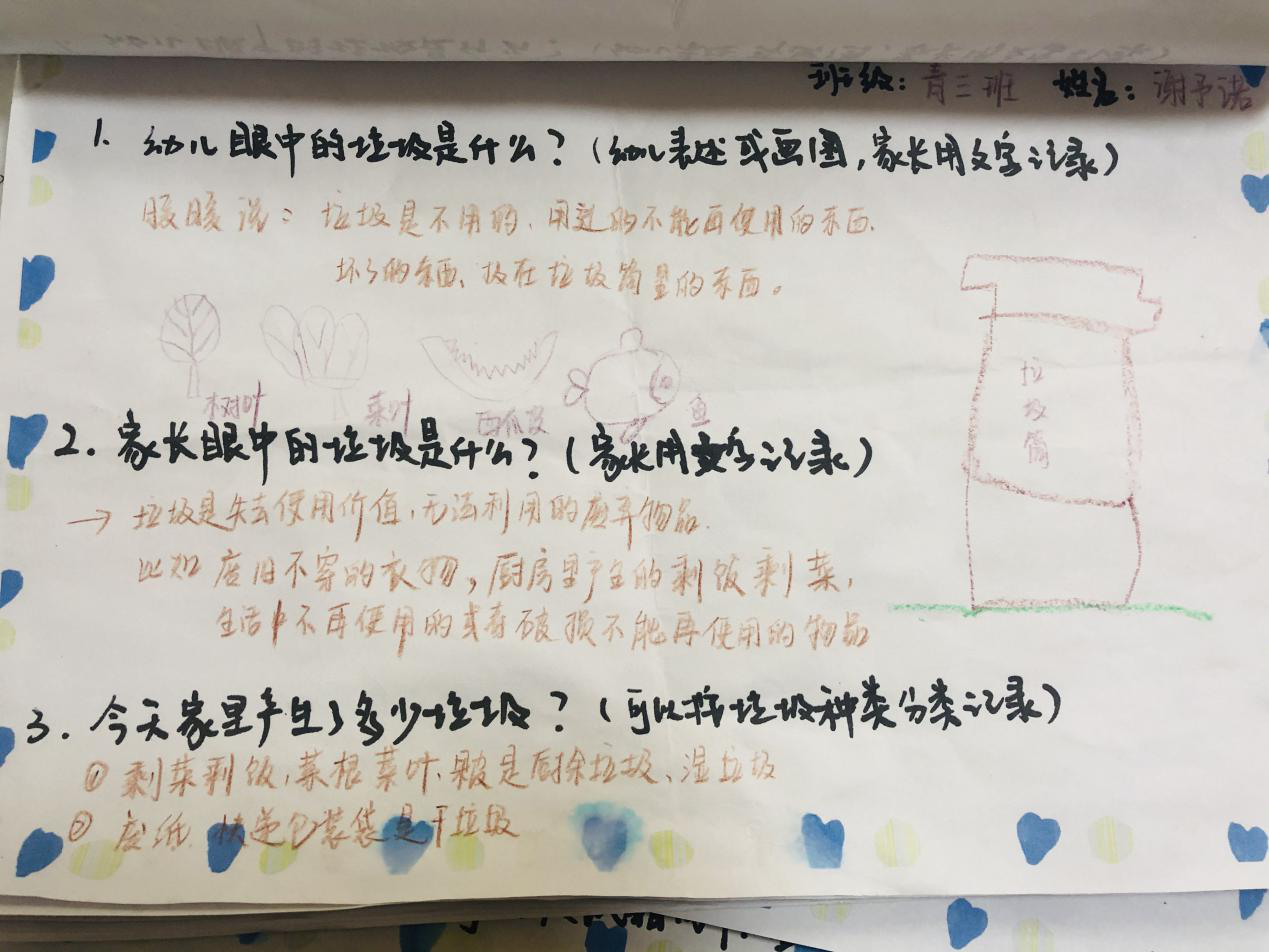 班级：青三班 姓名：谢予诺
1. 幼儿眼中的垃圾是什么？（幼儿表述或画图，家长用文字记录）
暖暖说：垃圾是不用的、用过的不能再使用的东西、
坏了的东西、扔在垃圾筒里的东西。
树叶 菜叶 西瓜皮 鱼
垃圾筒
2. 家长眼中的垃圾是什么？（家长用文字记录）
→ 垃圾是失去使用价值，无法利用的废弃物品.
比如废旧不穿的衣物，厨房里产生的剩饭剩菜，
生活中不再使用的或者破损不能再使用的物品
3. 今天家里产生了多少垃圾？（可以按垃圾种类分类记录）
① 剩菜剩饭、菜根菜叶、果皮是厨余垃圾、湿垃圾
② 废纸 快递包装袋是干垃圾